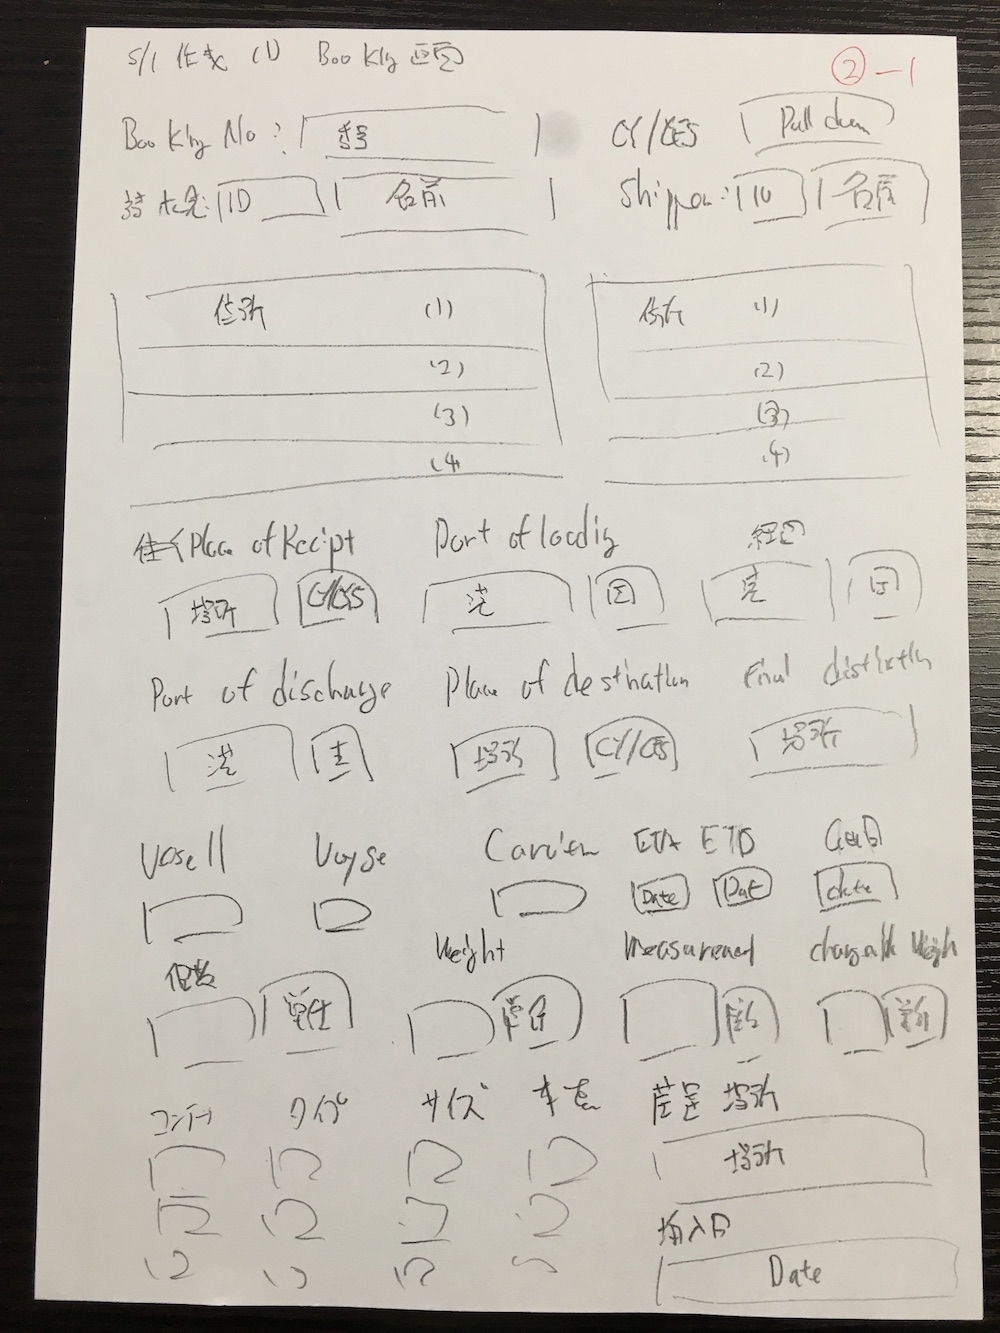 S/I 作成 (1) Booking 画面
②-1
Booking No: 番号
CY/CFS Pull down
ID 名前
Shipper: ID 名前
住所 (1)
(2)
(3)
(4)
住所 (1)
(2)
(3)
(4)
Place of Receipt
Port of loadig
経由
場所 CY/CFS
港 国
港 国
Port of discharge
Place of destination
Final
港 国
場所 CY/CFS
場所
Vasell
Voyge
Carrier
ETA ETD
Date Dat date
個数
Weight
Measurement
chargeable Weigh
単位
単位
単位
単位
コンテナ
タイプ
サイズ
本数
場所
場所
搬入日
Date